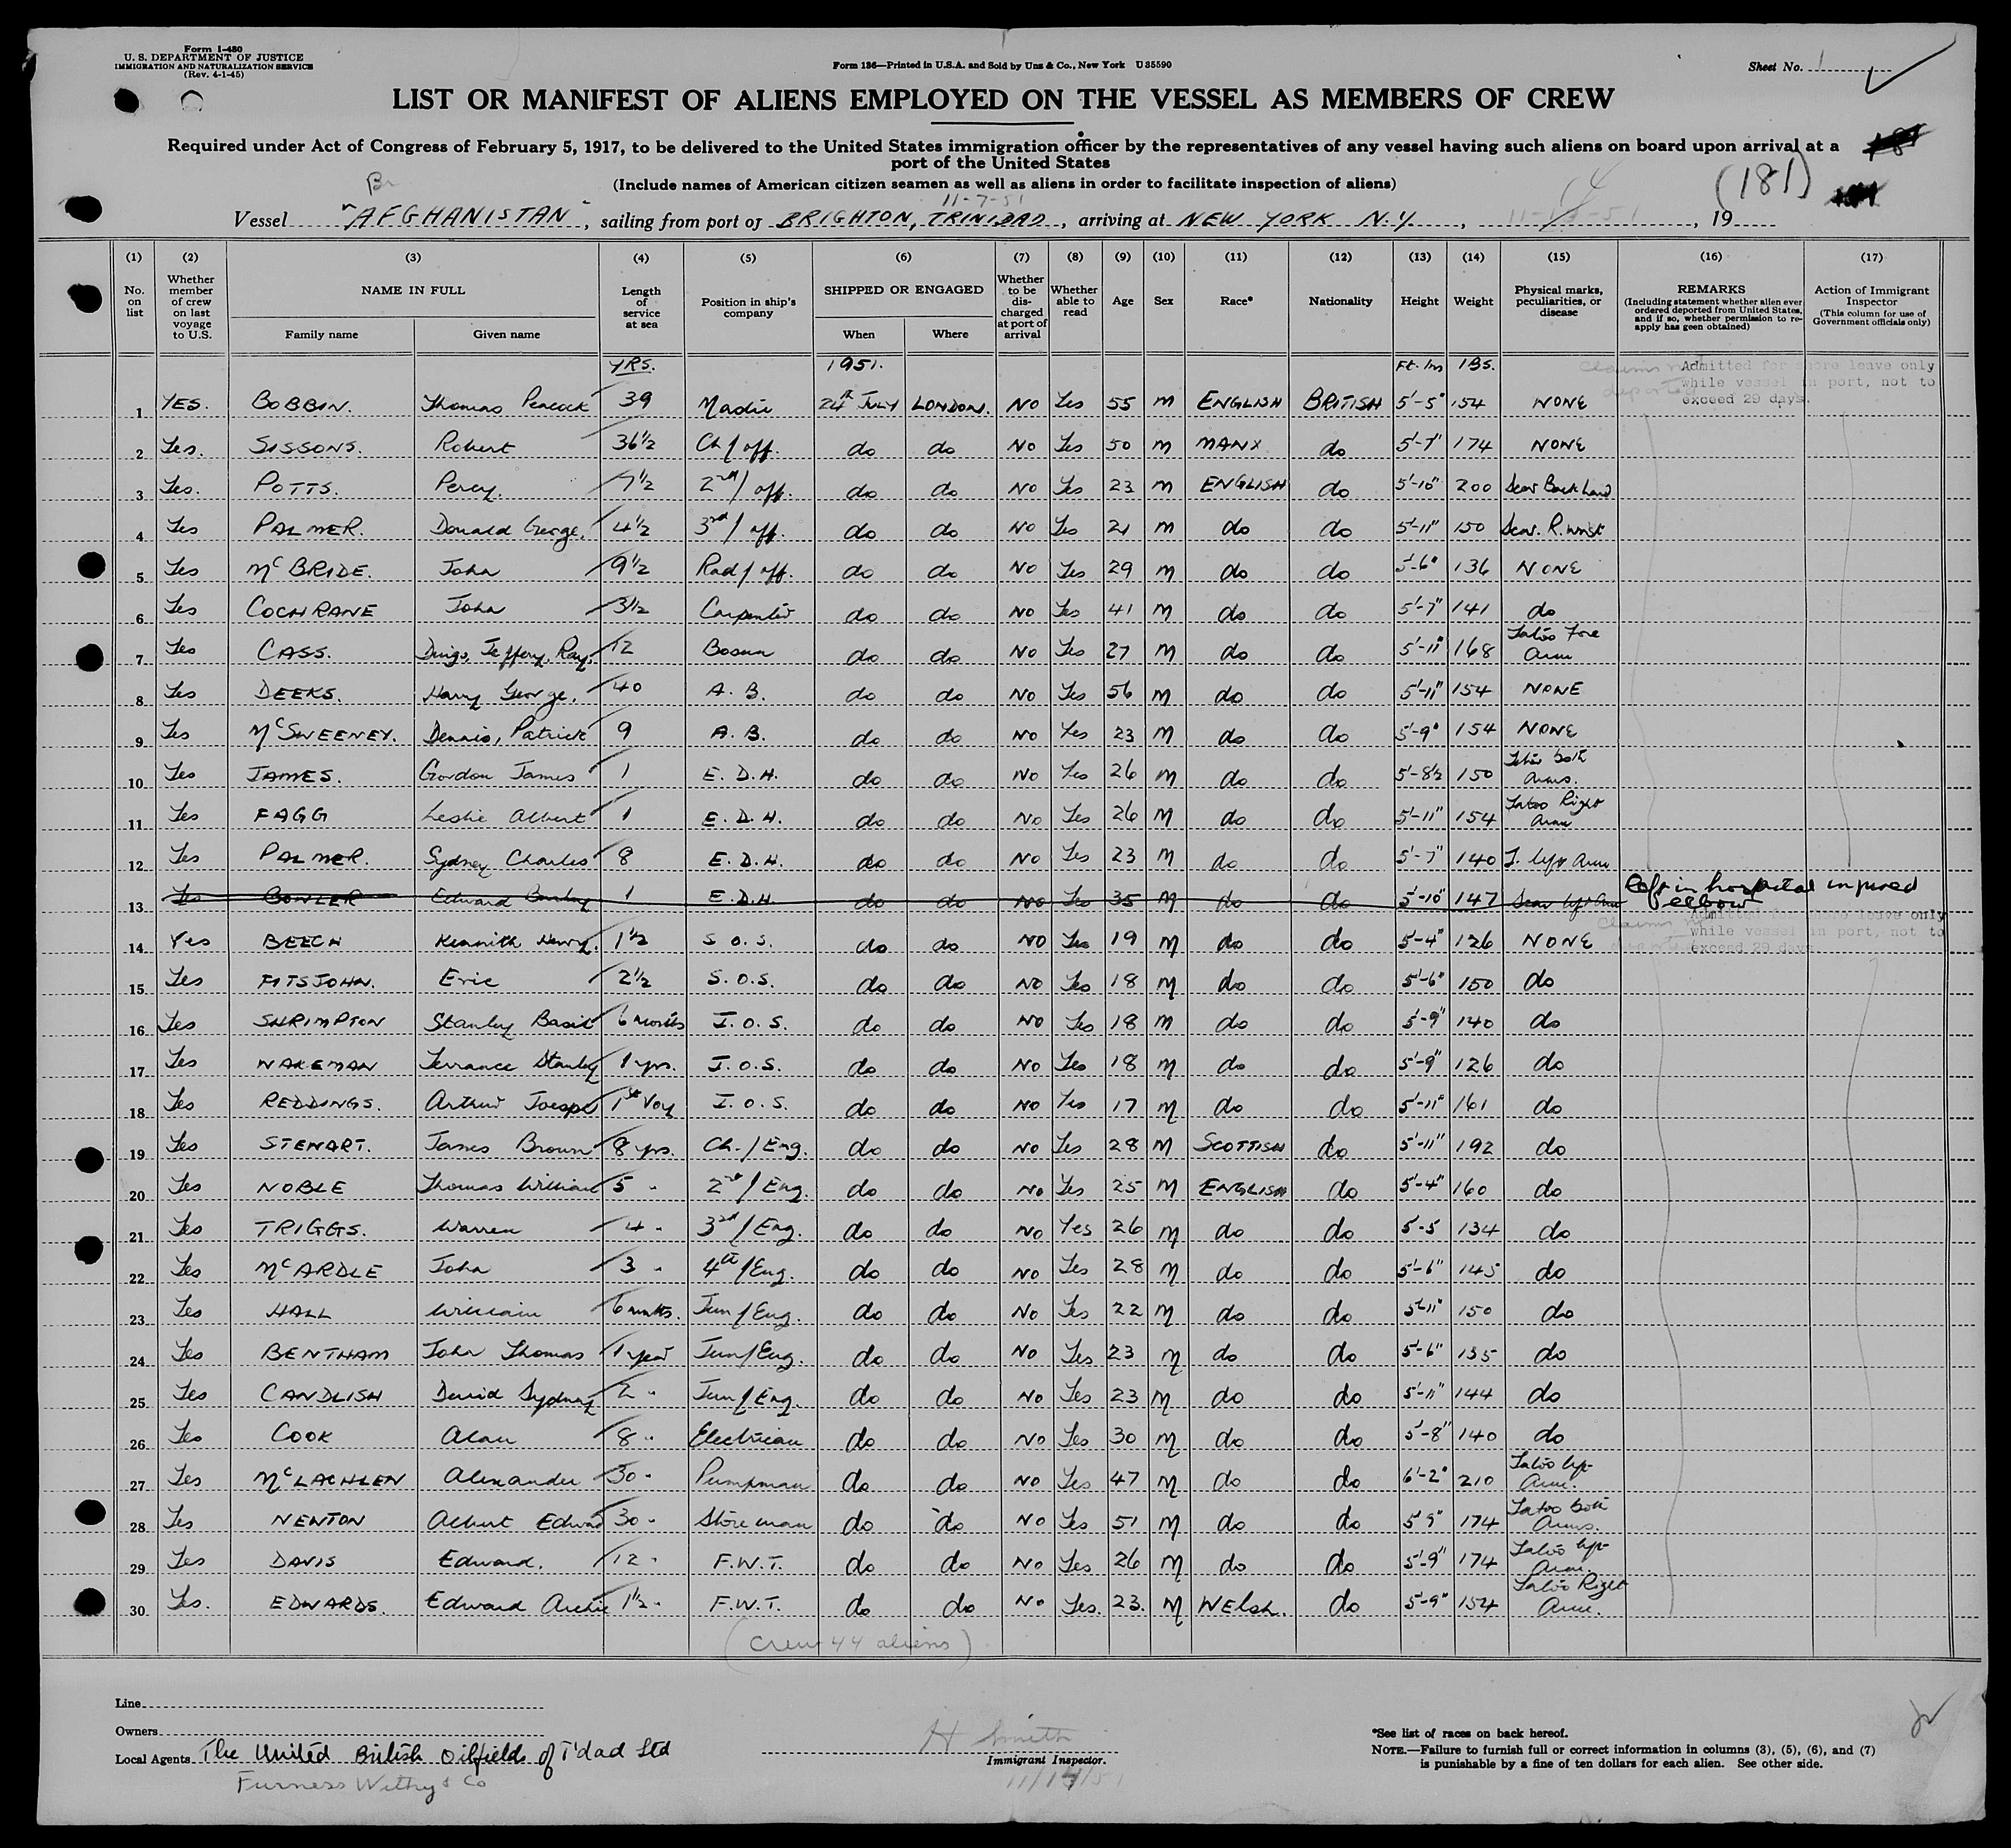 Form I-480
U. S. DEPARTMENT OF JUSTICE
IMMIGRATION AND NATURALIZATION SERVICE
(Rev. 4-1-45)
Form 136—Printed in U.S.A. and Sold by Unz & Co., New York U35590
Sheet No. 1
LIST OR MANIFEST OF ALIENS EMPLOYED ON THE VESSEL AS MEMBERS OF CREW
Required under Act of Congress of February 5, 1917, to be delivered to the United States immigration officer by the representatives of any vessel having such aliens on board upon arrival at a
port of the United States
(Include names of American citizen seamen as well as aliens in order to facilitate inspection of aliens)
(181)
Br
11-7-51
Vessel "AFGHANISTAN", sailing from port of BRIGHTON, TRINIDAD, arriving at NEW YORK N.Y., 11-14-51, 19
(1) (2) (3) (4) (5) (6) (7) (8) (9) (10) (11) (12) (13) (14) (15) (16) (17)
No. on list
Whether member of crew on last voyage to U.S.
NAME IN FULL
Family name Given name
Length of service at sea
Position in ship's company
SHIPPED OR ENGAGED
When Where
Whether to be discharged at port of arrival
Whether able to read
Age
Sex
Race*
Nationality
Height
Weight
Physical marks, peculiarities, or disease
REMARKS
(Including statement whether alien ever ordered deported from United States, and if so, whether permission to re-apply has been obtained)
Action of Immigrant Inspector
(This column for use of Government officials only)
YRS. 1951. Ft. Ins lBS.
Admitted for shore leave only
while vessel in port, not to
exceed 29 days.
1 YES. BOBBIN. Thomas Peacock 39 Master 24th JULY LONDON. NO Yes 55 M ENGLISH BRITISH 5'-5" 154 NONE
2 Yes. SISSONS. Robert 36½ Ch/off. do do NO Yes 50 M MANX do 5'-7" 174 NONE
3 Yes. POTTS. Percy. 7½ 2nd/off. do do NO Yes 23 M ENGLISH do 5'-10" 200 Scar Back hand
4 Yes PALMER. Donald George. 4½ 3rd/off. do do NO Yes 21 M do do 5'-11" 150 Scar. R. wrist
5 Yes McBRIDE. John 9½ Rad/off. do do NO Yes 29 M do do 5'-6" 136 NONE
6 Yes COCHRANE John 3½ Carpenter do do NO Yes 41 M do do 5'-7" 141 do
7 Yes CASS. Jeffery, Ray. 12 Bosun do do NO Yes 27 M do do 5'-11" 168 Tatoo Fore Arm
8 Yes DEEKS. Harry George. 40 A. B. do do NO Yes 56 M do do 5'-11" 154 NONE
9 Yes McSWEENEY. Dennis, Patrick 9 A. B. do do NO Yes 23 M do do 5'-9" 154 NONE
10 Yes JAMES. Gordon James 1 E. D. H. do do NO Yes 26 M do do 5'-8½ 150 Tatoo both Arms.
11 Yes FAGG Leslie Albert 1 E. D. H. do do No Yes 26 M do do 5'-11" 154 Tatoo Right Arm
12 Yes PALMER. Sydney Charles 8 E. D. H. do do NO Yes 23 M do do 5'-7" 140 T. left Arm
13 Yes BOWLER Edward 1 E. D. H. do do NO Yes 35 M do do 5'-10" 147 Scar left Arm left in hospital injured elbow
Admitted for shore leave only
while vessel in port, not to
exceed 29 days
14 Yes BEECH Kennith Henry. 1½ S. O. S. do do NO Yes 19 M do do 5'-4" 126 NONE
15 Yes FITSJOHN. Eric 2½ S. O. S. do do NO Yes 18 M do do 5'-6" 150 do
16 Yes SHRIMPTON Stanley Basil 6 months J. O. S. do do NO Yes 18 M do do 5'-9" 140 do
17 Yes WAKEMAN Terrance Stanley 1 yrs. J. O. S. do do NO Yes 18 M do do 5'-9" 126 do
18 Yes REDDINGS. Arthur Joesph 1st Voy J. O. S. do do NO Yes 17 M do do 5'-11" 161 do
19 Yes STEWART. James Brown 8 yrs. Ch./Eng. do do NO Yes 28 M SCOTTISH do 5'-11" 192 do
20 Yes NOBLE Thomas William 5 " 2nd/Eng. do do NO Yes 25 M ENGLISH do 5'-4" 160 do
21 Yes TRIGGS. Warren 4 " 3rd/Eng. do do NO Yes 26 M do do 5-5 134 do
22 Yes McARDLE John 3 " 4th/Eng. do do NO Yes 28 M do do 5'-6" 145 do
23 Yes HALL William 6 mnths. Jun/Eng. do do NO Yes 22 M do do 5'-11" 150 do
24 Yes BENTHAM John Thomas 1 year Jun/Eng. do do NO Yes 23 M do do 5'-6" 135 do
25 Yes CANDLISH David Sydney 2 " Jun/Eng. do do NO Yes 23 M do do 5'-11" 144 do
26 Yes COOK Alan 8 " Electrician do do NO Yes 30 M do do 5'-8" 140 do
27 Yes McLACHLEN Alexander 30 " Pumpman do do NO Yes 47 M do do 6'-2" 210 Tatoo left Arm.
28 Yes NEWTON Albert Edward 30 " Store man do do NO Yes 51 M do do 5'9" 174 Tatoo both Arms.
29 Yes DAVIS Edward. 12 " F.W.T. do do NO Yes 26 M do do 5'-9" 174 Tatoo left Arm.
30 Yes. EDWARDS. Edward Archie 1½ " F.W.T. do do NO Yes. 23. M WELSH. do 5'-9" 154 Tatoo Right Arm.
(Crew 44 aliens)
Line
Owners
Local Agents The United British Oilfields of T'dad Ltd
Furness Withy & Co
H Smith
Immigrant Inspector.
11/14/51
*See list of races on back hereof.
NOTE.—Failure to furnish full or correct information in columns (3), (5), (6), and (7)
is punishable by a fine of ten dollars for each alien. See other side.